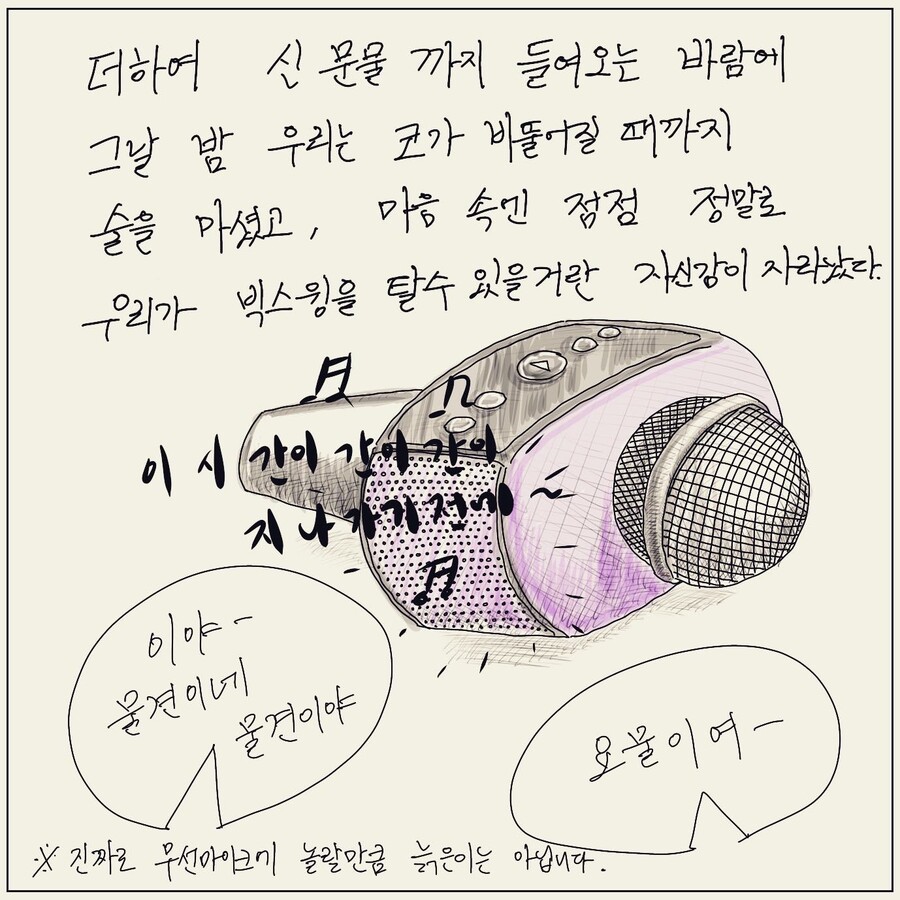 더하여 신 문물 까지 들여오는 바람에
그날 밤 우리는 코가 비뚤어질 때까지
술을 마셨고, 마음 속엔 점점 정말로
우리가 빅스윙을 탈수 있을거란 자신감이 자라났다.
이 시 간이 간이 간이
지나가기 전에 ~
이야-
물건이네
물건이야
요물이여-
※ 진짜로 무선마이크에 놀랄만큼 늙은이는 아닙니다.